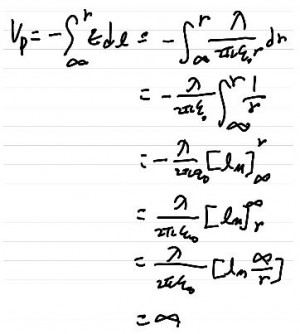 Vp = -∫_∞^r ε dl = -∫_∞^r λ/(2πε₀r) dr
= -λ/(2πε₀) ∫_∞^r 1/r
= -λ/(2πε₀) [ln]_∞^r
= λ/(2πε₀) [ln]_r^∞
= λ/(2πε₀) [ln ∞/r]
= ∞